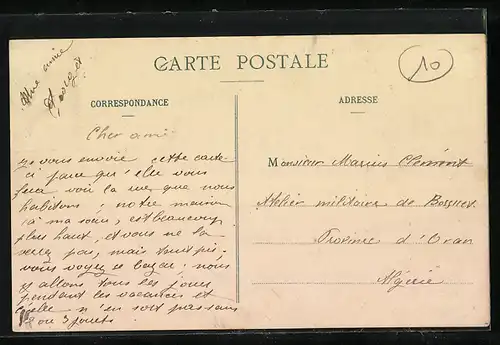 CARTE POSTALE
10
CORRESPONDANCE
ADRESSE
Cher ami
je vous envoie cette carte-
ci parce qu'elle vous
fera voir la rue que nous
habitons; notre maison
à ma sœur, est beaucoup
plus haut, et vous ne la
verez pas, mais tout pis-
vous voyez le bazar; nous
y allons tous les jours
pendant les vacances et
n'en sort pas sans
2 ou 3 jouets.
Une amie
Monsieur Marius Clément
Atelier militaire de Bossuet
Province d'Oran
Algérie